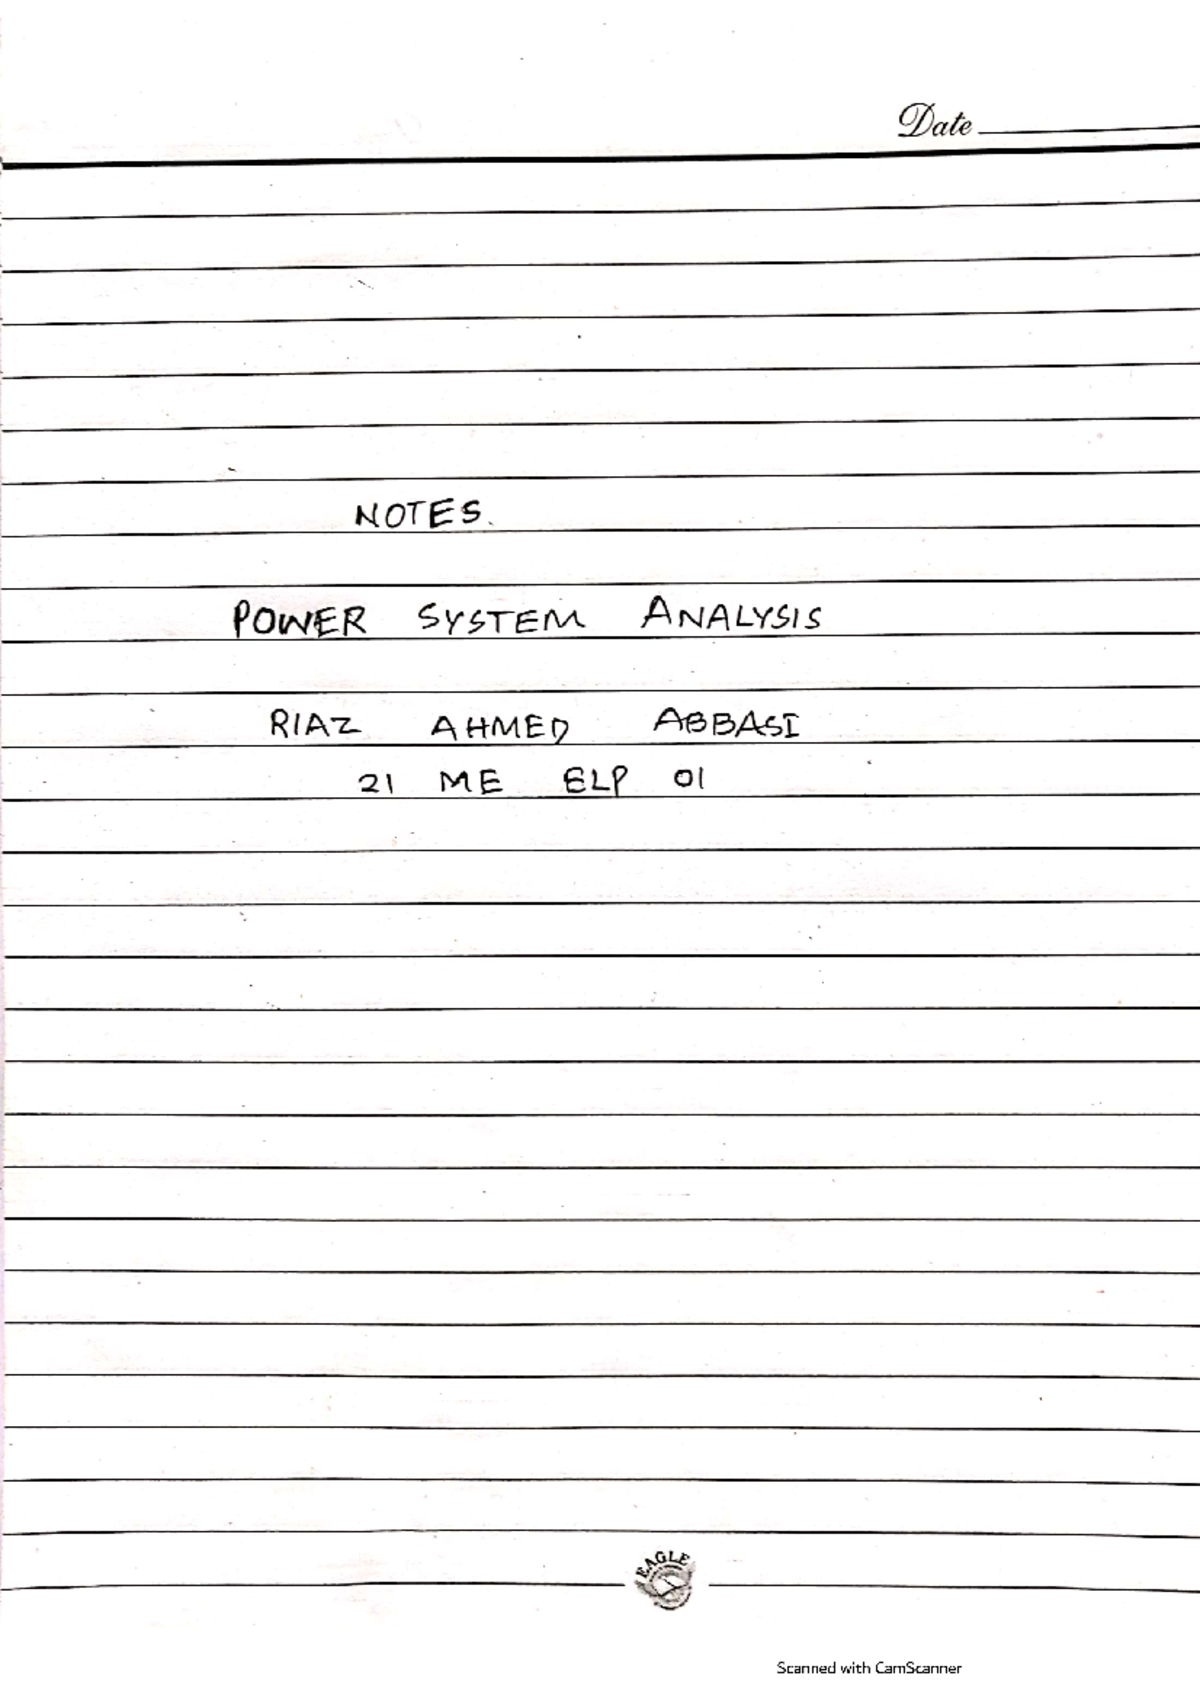 Date
NOTES.
POWER SYSTEM ANALYSIS
RIAZ AHMED ABBASI
21 ME ELP 01
EAGLE
Scanned with CamScanner